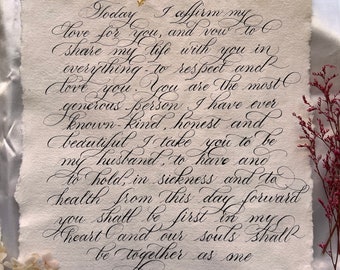 Today I affirm my
love for you, and vow to
share my life with you in
everything - to respect and
love you. You are the most
generous person I have ever
known - kind, honest and
beautiful. I take you to be
my husband, to have and
to hold, in sickness and to
health from this day forward
you shall be first in my
heart and our souls shall
be together as me